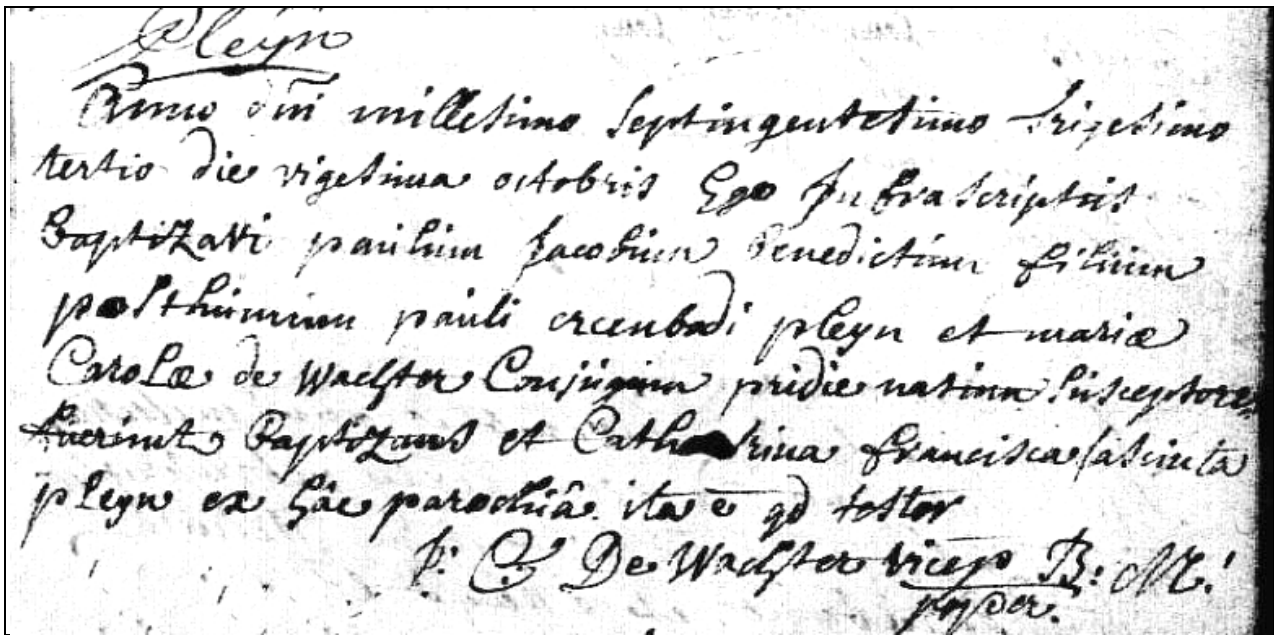 Pleyn
Anno dni millesimo septingentesimo trigesimo
tertio die vigesima octobris Ego Infrascriptus
Baptizavi paulum Jacobum Benedictum filium
posthumum pauli ercenbadi pleyn et mariæ
Carolæ de Wachter Conjugum pridie natum susceptores
fuerunt Baptizans et Catharina francisca Jacinta
pleyn ex hâc parochiâ ita ē qd testor
C De Wachter vicep B: M: